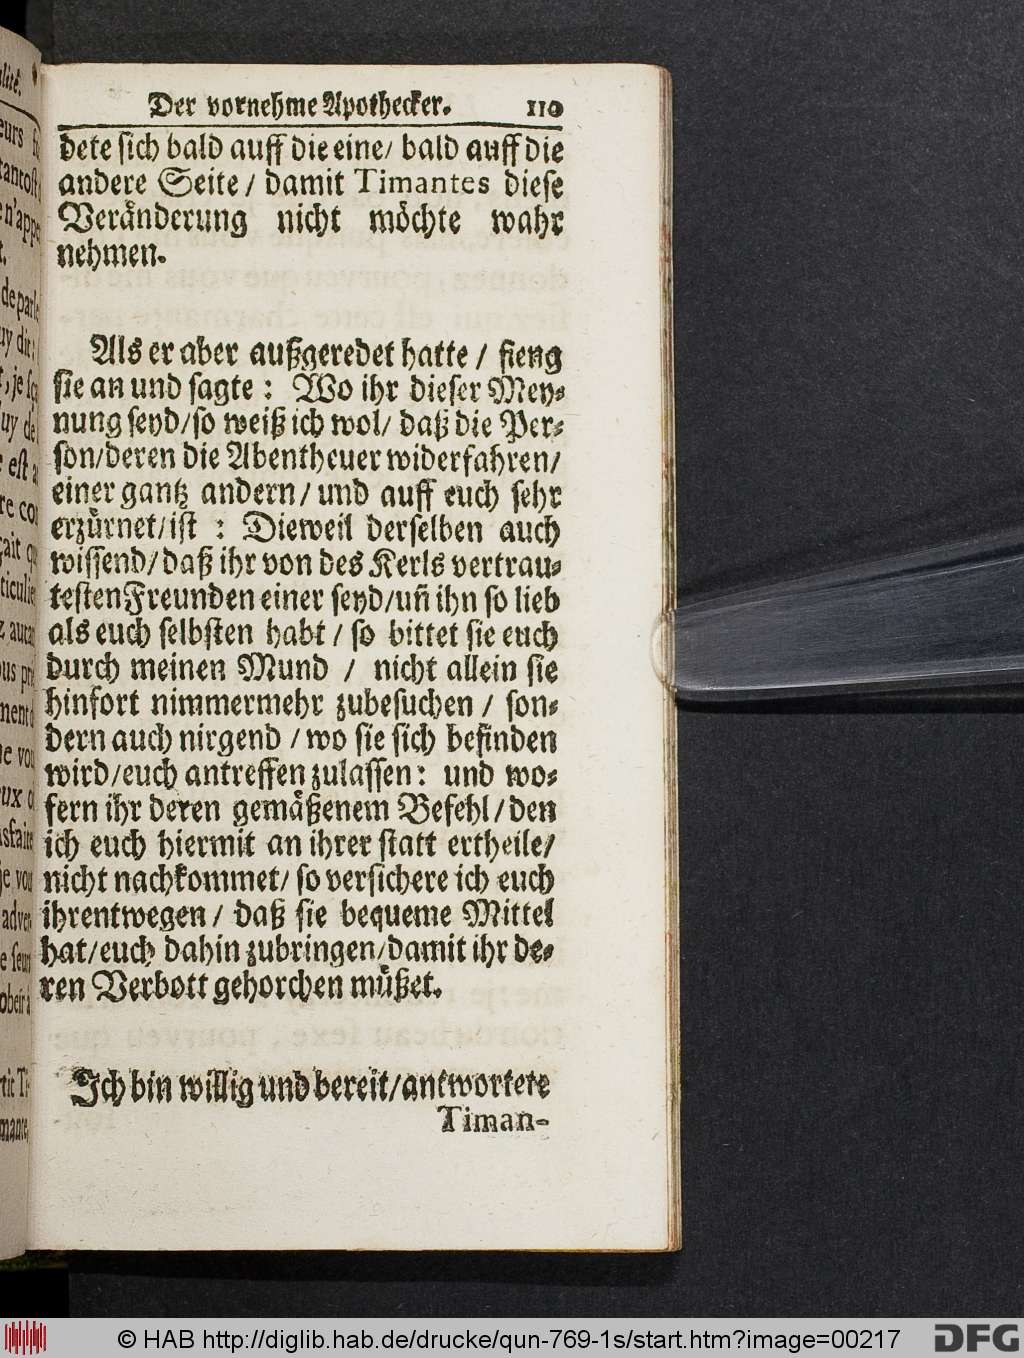 Der vornehme Apothecker. 110
dete sich bald auff die eine/ bald auff die
andere Seite / damit Timantes diese
Veränderung nicht möchte wahr
nehmen.
Als er aber außgeredet hatte / fieng
sie an und sagte : Wo ihr dieser Mey-
nung seyd/so weiß ich wol/ daß die Per-
son/deren die Abentheuer widerfahren/
einer gantz andern / und auff euch sehr
erzürnet/ist : Dieweil derselben auch
wissend/daß ihr von des Kerls vertrau-
testen Freunden einer seyd/uñ ihn so lieb
als euch selbsten habt / so bittet sie euch
durch meinen Mund / nicht allein sie
hinfort nimmermehr zubesuchen / son-
dern auch nirgend / wo sie sich befinden
wird/euch antreffen zulassen: und wo-
fern ihr deren gemäßenem Befehl/den
ich euch hiermit an ihrer statt ertheile/
nicht nachkommet/ so versichere ich euch
ihrentwegen / daß sie bequeme Mittel
hat/euch dahin zubringen/damit ihr de-
ren Verbott gehorchen müßet.
Ich bin willig und bereit/antwortete
Timan-
© HAB http://diglib.hab.de/drucke/qun-769-1s/start.htm?image=00217
DFG